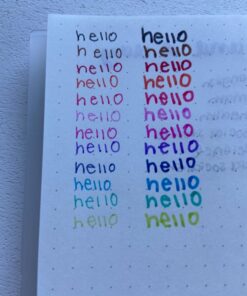 hello hello
hello hello
hello hello
hello hello
hello hello
hello hello
hello hello
hello hello
hello hello
hello hello
hello hello
hello hello